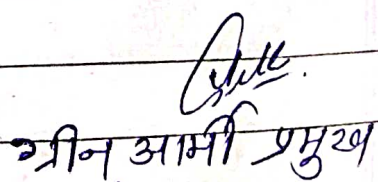 ग्रीन आर्मी प्रमुख